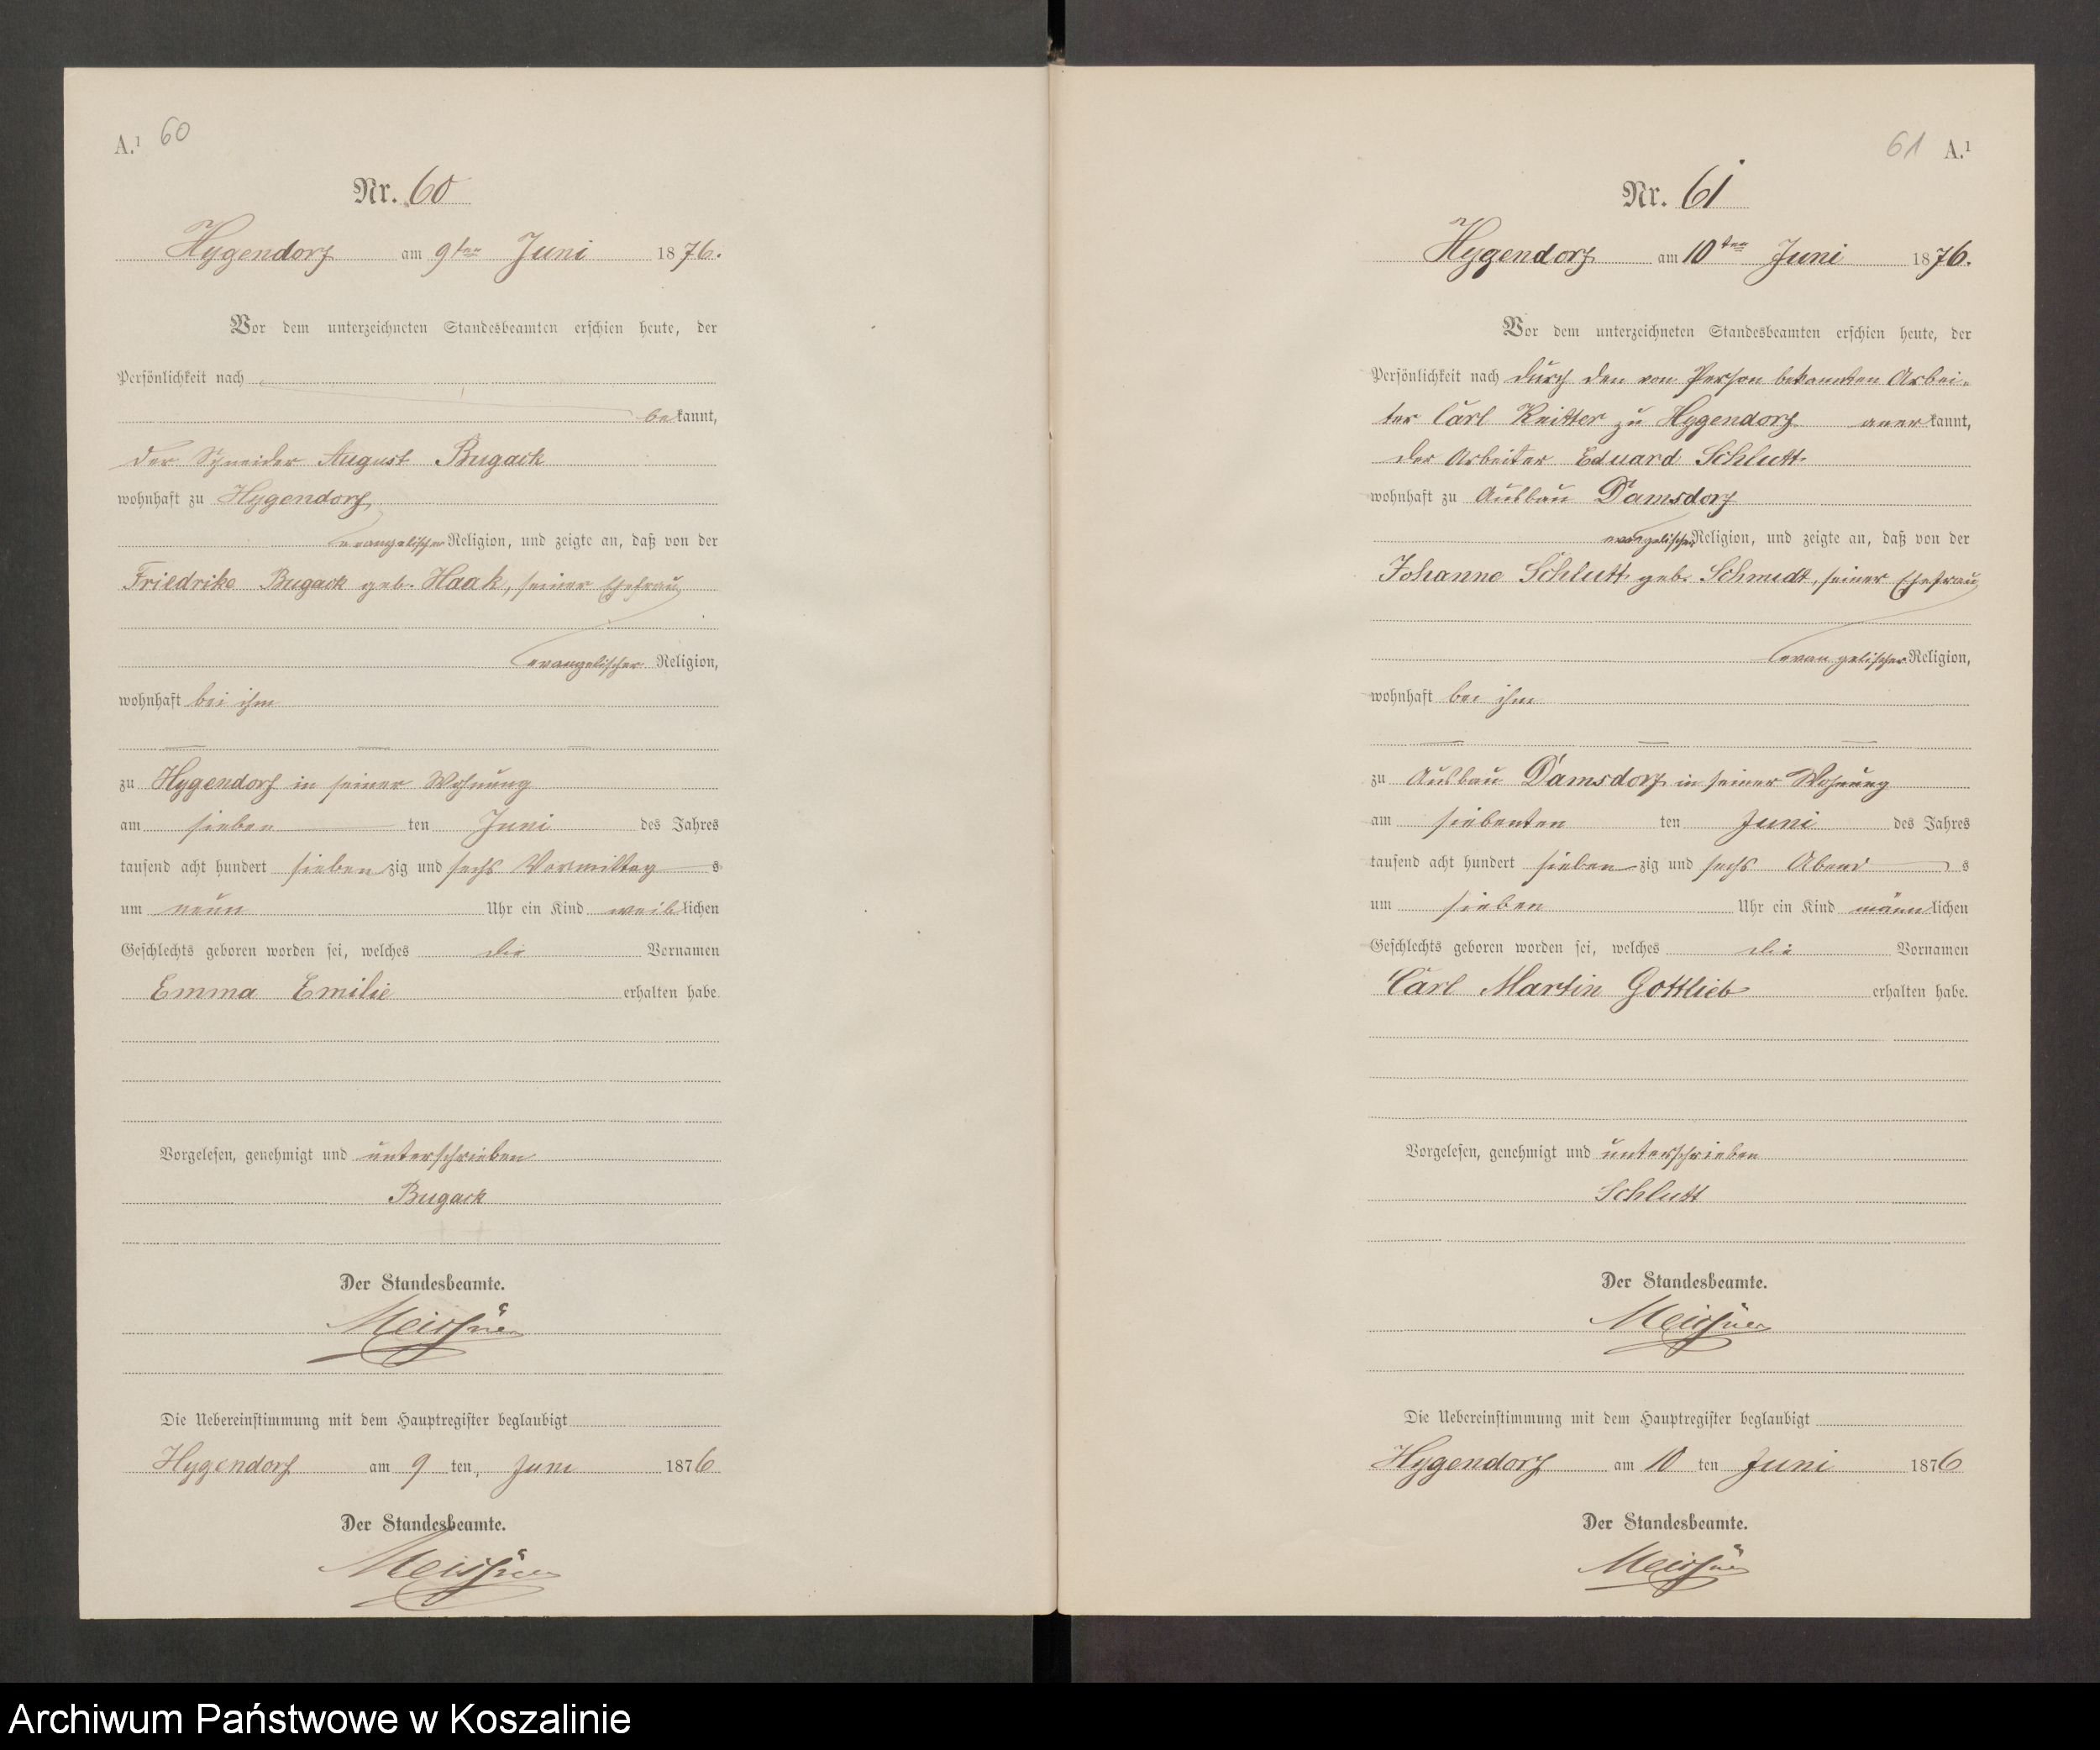 A.¹ 60
Nr. 60
Hygendorf am 9ten Juni 1876.
Vor dem unterzeichneten Standesbeamten erschien heute, der
Persönlichkeit nach
bekannt,
der Schneider August Bugack
wohnhaft zu Hygendorf,
evangelischer Religion, und zeigte an, daß von der
Friedrike Bugack geb. Haak, seiner Ehefrau
evangelischer Religion,
wohnhaft bei ihm
zu Hygendorf in seiner Wohnung
am sieben ten Juni des Jahres
tausend acht hundert siebenzig und sechs Vormittag s
um neun Uhr ein Kind weiblichen
Geschlechts geboren worden sei, welches die Vornamen
Emma Emilie erhalten habe.
Vorgelesen, genehmigt und unterschrieben
Bugack
Der Standesbeamte.
Meissner
Die Uebereinstimmung mit dem Hauptregister beglaubigt
Hygendorf am 9 ten, Juni 1876
Der Standesbeamte.
Meissner
61 A.¹
Nr. 61
Hygendorf am 10ten Juni 1876.
Vor dem unterzeichneten Standesbeamten erschien heute, der
Persönlichkeit nach durch den von Person bekannten Arbei-
ter Carl Reitter zu Hygendorf anerkannt,
der Arbeiter Eduard Schlutt
wohnhaft zu Ausbau Damsdorf
evangelischer Religion, und zeigte an, daß von der
Johanne Schlutt geb. Schmidt, seiner Ehefrau
evangelischer Religion,
wohnhaft bei ihm
zu Ausbau Damsdorf in seiner Wohnung
am siebenten ten Juni des Jahres
tausend acht hundert siebenzig und sechs Abend s
um sieben Uhr ein Kind männlichen
Geschlechts geboren worden sei, welches die Vornamen
Carl Martin Gottlieb erhalten habe.
Vorgelesen, genehmigt und unterschrieben
Schlutt
Der Standesbeamte.
Meissner
Die Uebereinstimmung mit dem Hauptregister beglaubigt
Hygendorf am 10 ten Juni 1876
Der Standesbeamte.
Meissner
Archiwum Państwowe w Koszalinie